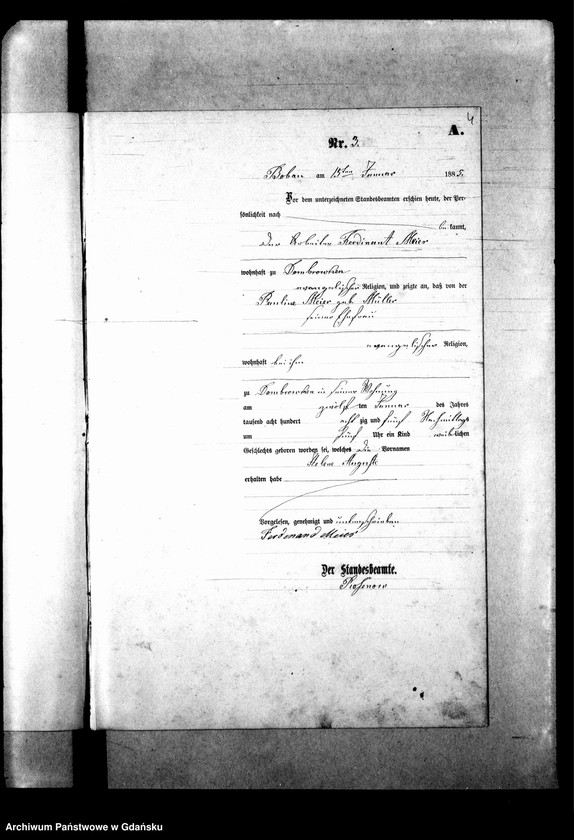 4
A.
Nr. 3.
Boban am 13ten Januar 1885.
Vor dem unterzeichneten Standesbeamten erschien heute, der Per-
sönlichkeit nach
be kannt,
der Arbeiter Ferdinant Meier
wohnhaft zu Dombrowken
evangelischer Religion, und zeigte an, daß von der
Pauline Meier geb Müller
seiner Ehefrau
evangelischer Religion,
wohnhaft bei ihm
zu Dombrowken in seiner Wohnung
am zwölf ten Januar des Jahres
tausend acht hundert acht zig und fünf Nachmittags
um fünf Uhr ein Kind weiblichen
Geschlechts geboren worden sei, welches die Vornamen
Auguste
erhalten habe
Vorgelesen, genehmigt und unterschrieben
Ferdenand Meier
Der Standesbeamte.
Archiwum Państwowe w Gdańsku